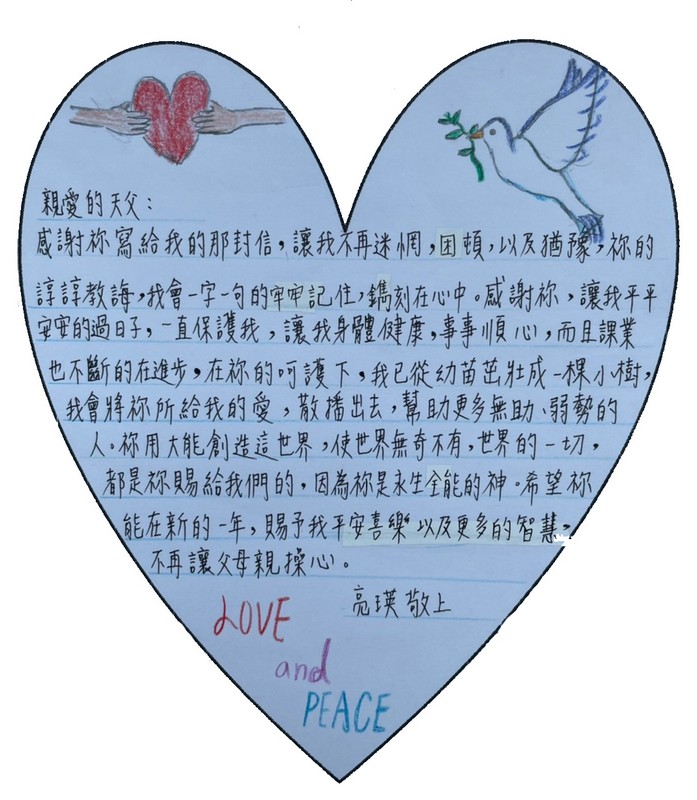 親愛的天父：
感謝祢寫給我的那封信，讓我不再迷惘，困頓，以及猶豫，祢的
諄諄教誨，我會一字一句的牢牢記住，鐫刻在心中。感謝祢，讓我平平
安安的過日子，一直保護我，讓我身體健康，事事順心，而且課業
也不斷的在進步，在祢的呵護下，我已從幼苗茁壯成一棵小樹，
我會將祢所給我的愛，散播出去，幫助更多無助、弱勢的
人。祢用大能創造這世界，使世界無奇不有，世界的一切，
都是祢賜給我們的，因為祢是永生全能的神。希望祢
能在新的一年，賜予我平安喜樂以及更多的智慧，
不再讓父母親操心。
亮瑛敬上
LOVE
and
PEACE